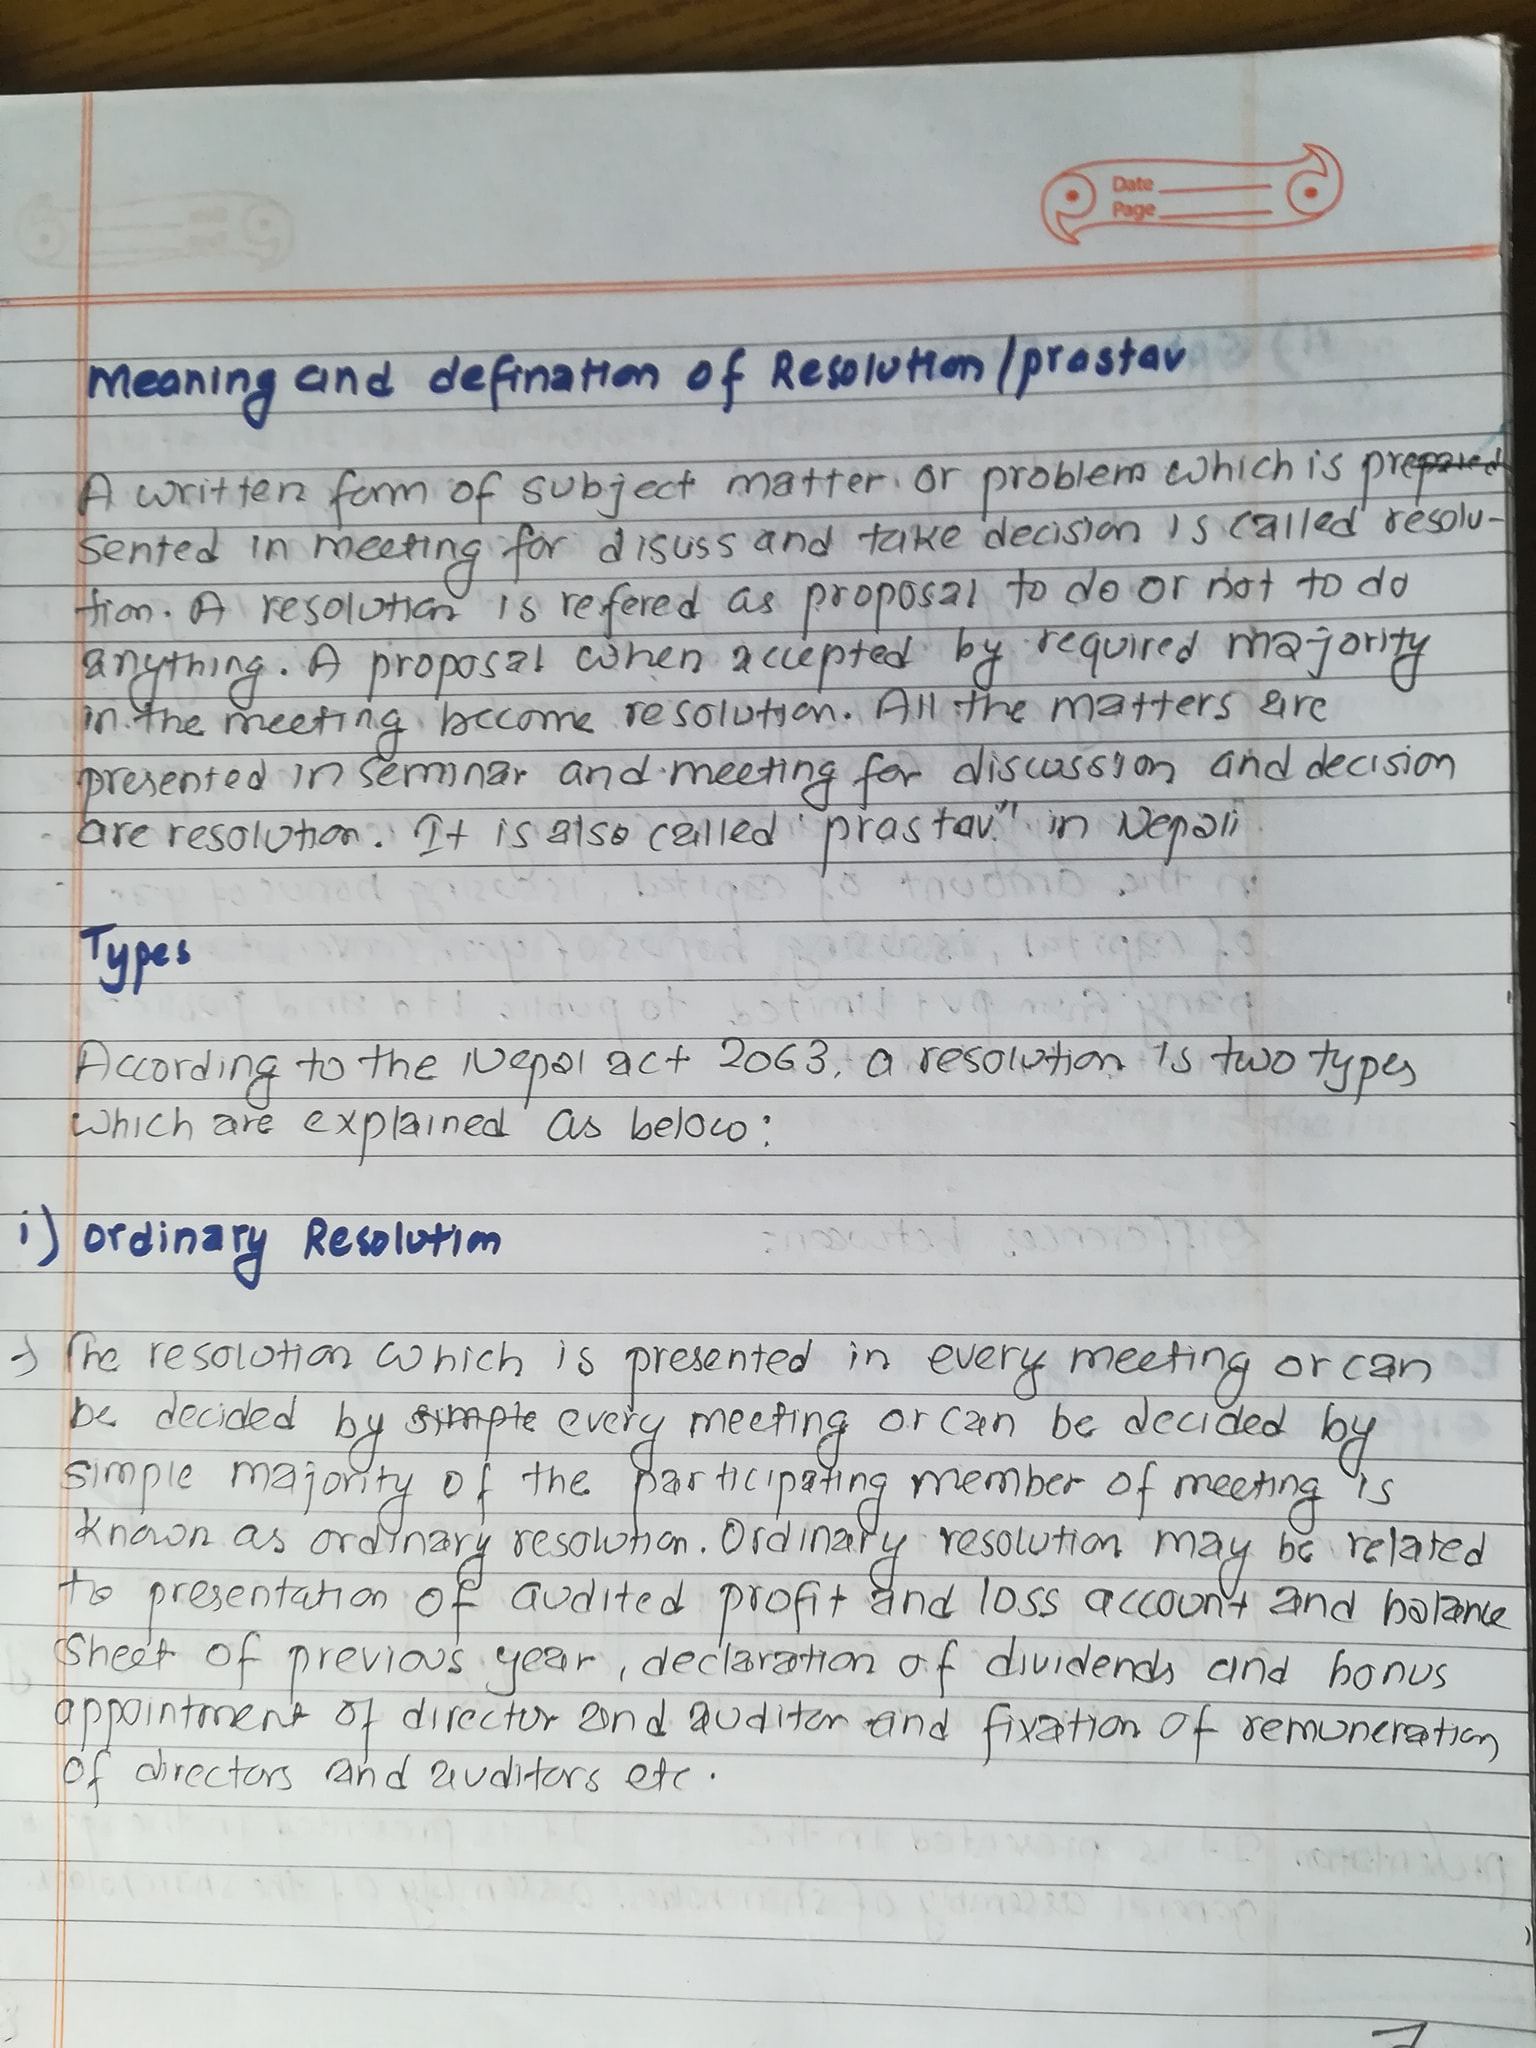 Date
Page
Meaning and defination of Resolution/prastav
A written form of subject matter or problem which is prepared
sented in meeting for disuss and take decision is called resolu-
tion. A resolution is refered as proposal to do or not to do
anything. A proposal when accepted by required majority
in the meeting become resolution. All the matters are
presented in seminar and meeting for discussion and decision
are resolution. It is also called "prastav" in Nepali
Types
According to the Nepal act 2063, a resolution is two types
which are explained as below:
i) Ordinary Resolution
→ The resolution which is presented in every meeting or can
be decided by simple every meeting or can be decided by
simple majority of the participating member of meeting is
known as ordinary resolution. Ordinary resolution may be related
to presentation of audited profit and loss account and balance
sheet of previous year, declaration of dividends and bonus
appointment of director and auditor and fixation of remuneration
of directors and auditors etc.